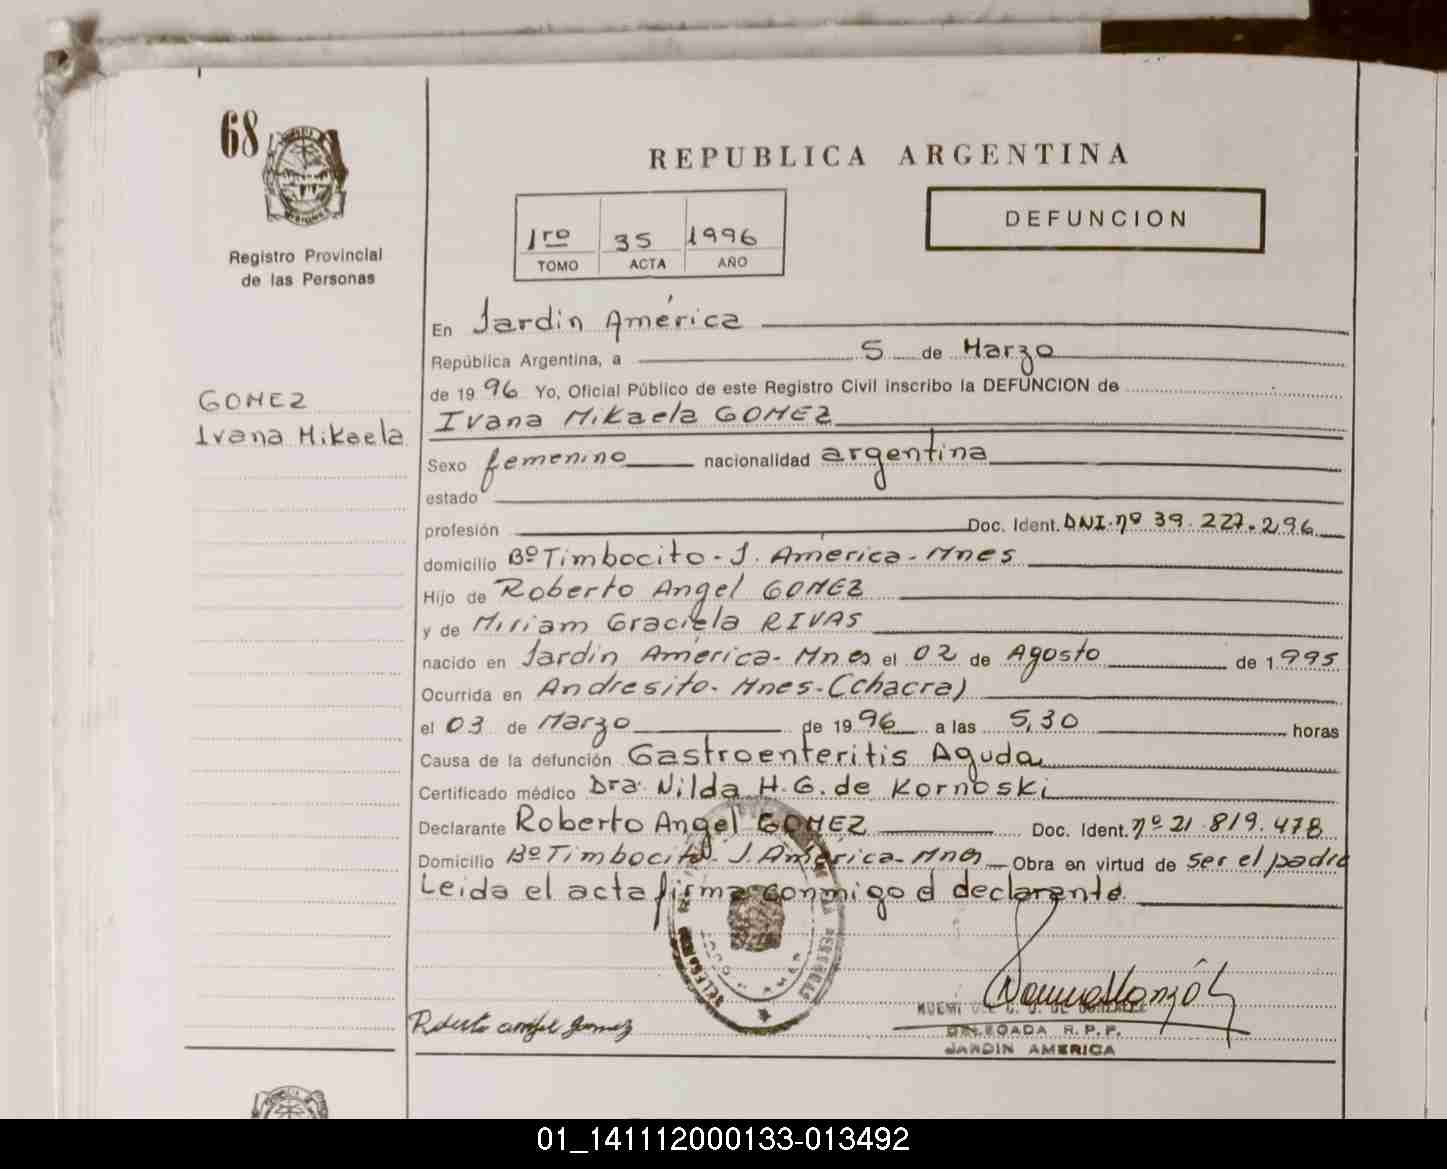 68
REPUBLICA ARGENTINA
1ro 35 1996
TOMO ACTA AÑO
DEFUNCION
Registro Provincial
de las Personas
GOMEZ
Ivana Mikaela
En Jardín América
República Argentina, a 5 de Marzo
de 1996 Yo, Oficial Público de este Registro Civil inscribo la DEFUNCION de
Ivana Mikaela GOMEZ
Sexo femenino nacionalidad argentina
estado
profesión Doc. Ident. DNI. nº 39.227.296
domicilio Bº Timbocito - J. América - Mnes
Hijo de Roberto Angel GOMEZ
y de Miriam Graciela RIVAS
nacido en Jardín América - Mnes el 02 de Agosto de 1995
Ocurrida en Andresito - Mnes - (chacra)
el 03 de Marzo de 1996 a las 5,30 horas
Causa de la defunción Gastroenteritis Aguda
Certificado médico Dra. Nilda H. G. de Kornoski
Declarante Roberto Angel GOMEZ Doc. Ident. nº 21.819.478
Domicilio Bº Timbocito J. América - Mnes Obra en virtud de ser el padre
Leida el acta firma conmigo el declarante.
Roberto angel gomez
DELEGADA R.P.P.
JARDIN AMERICA
01_141112000133-013492